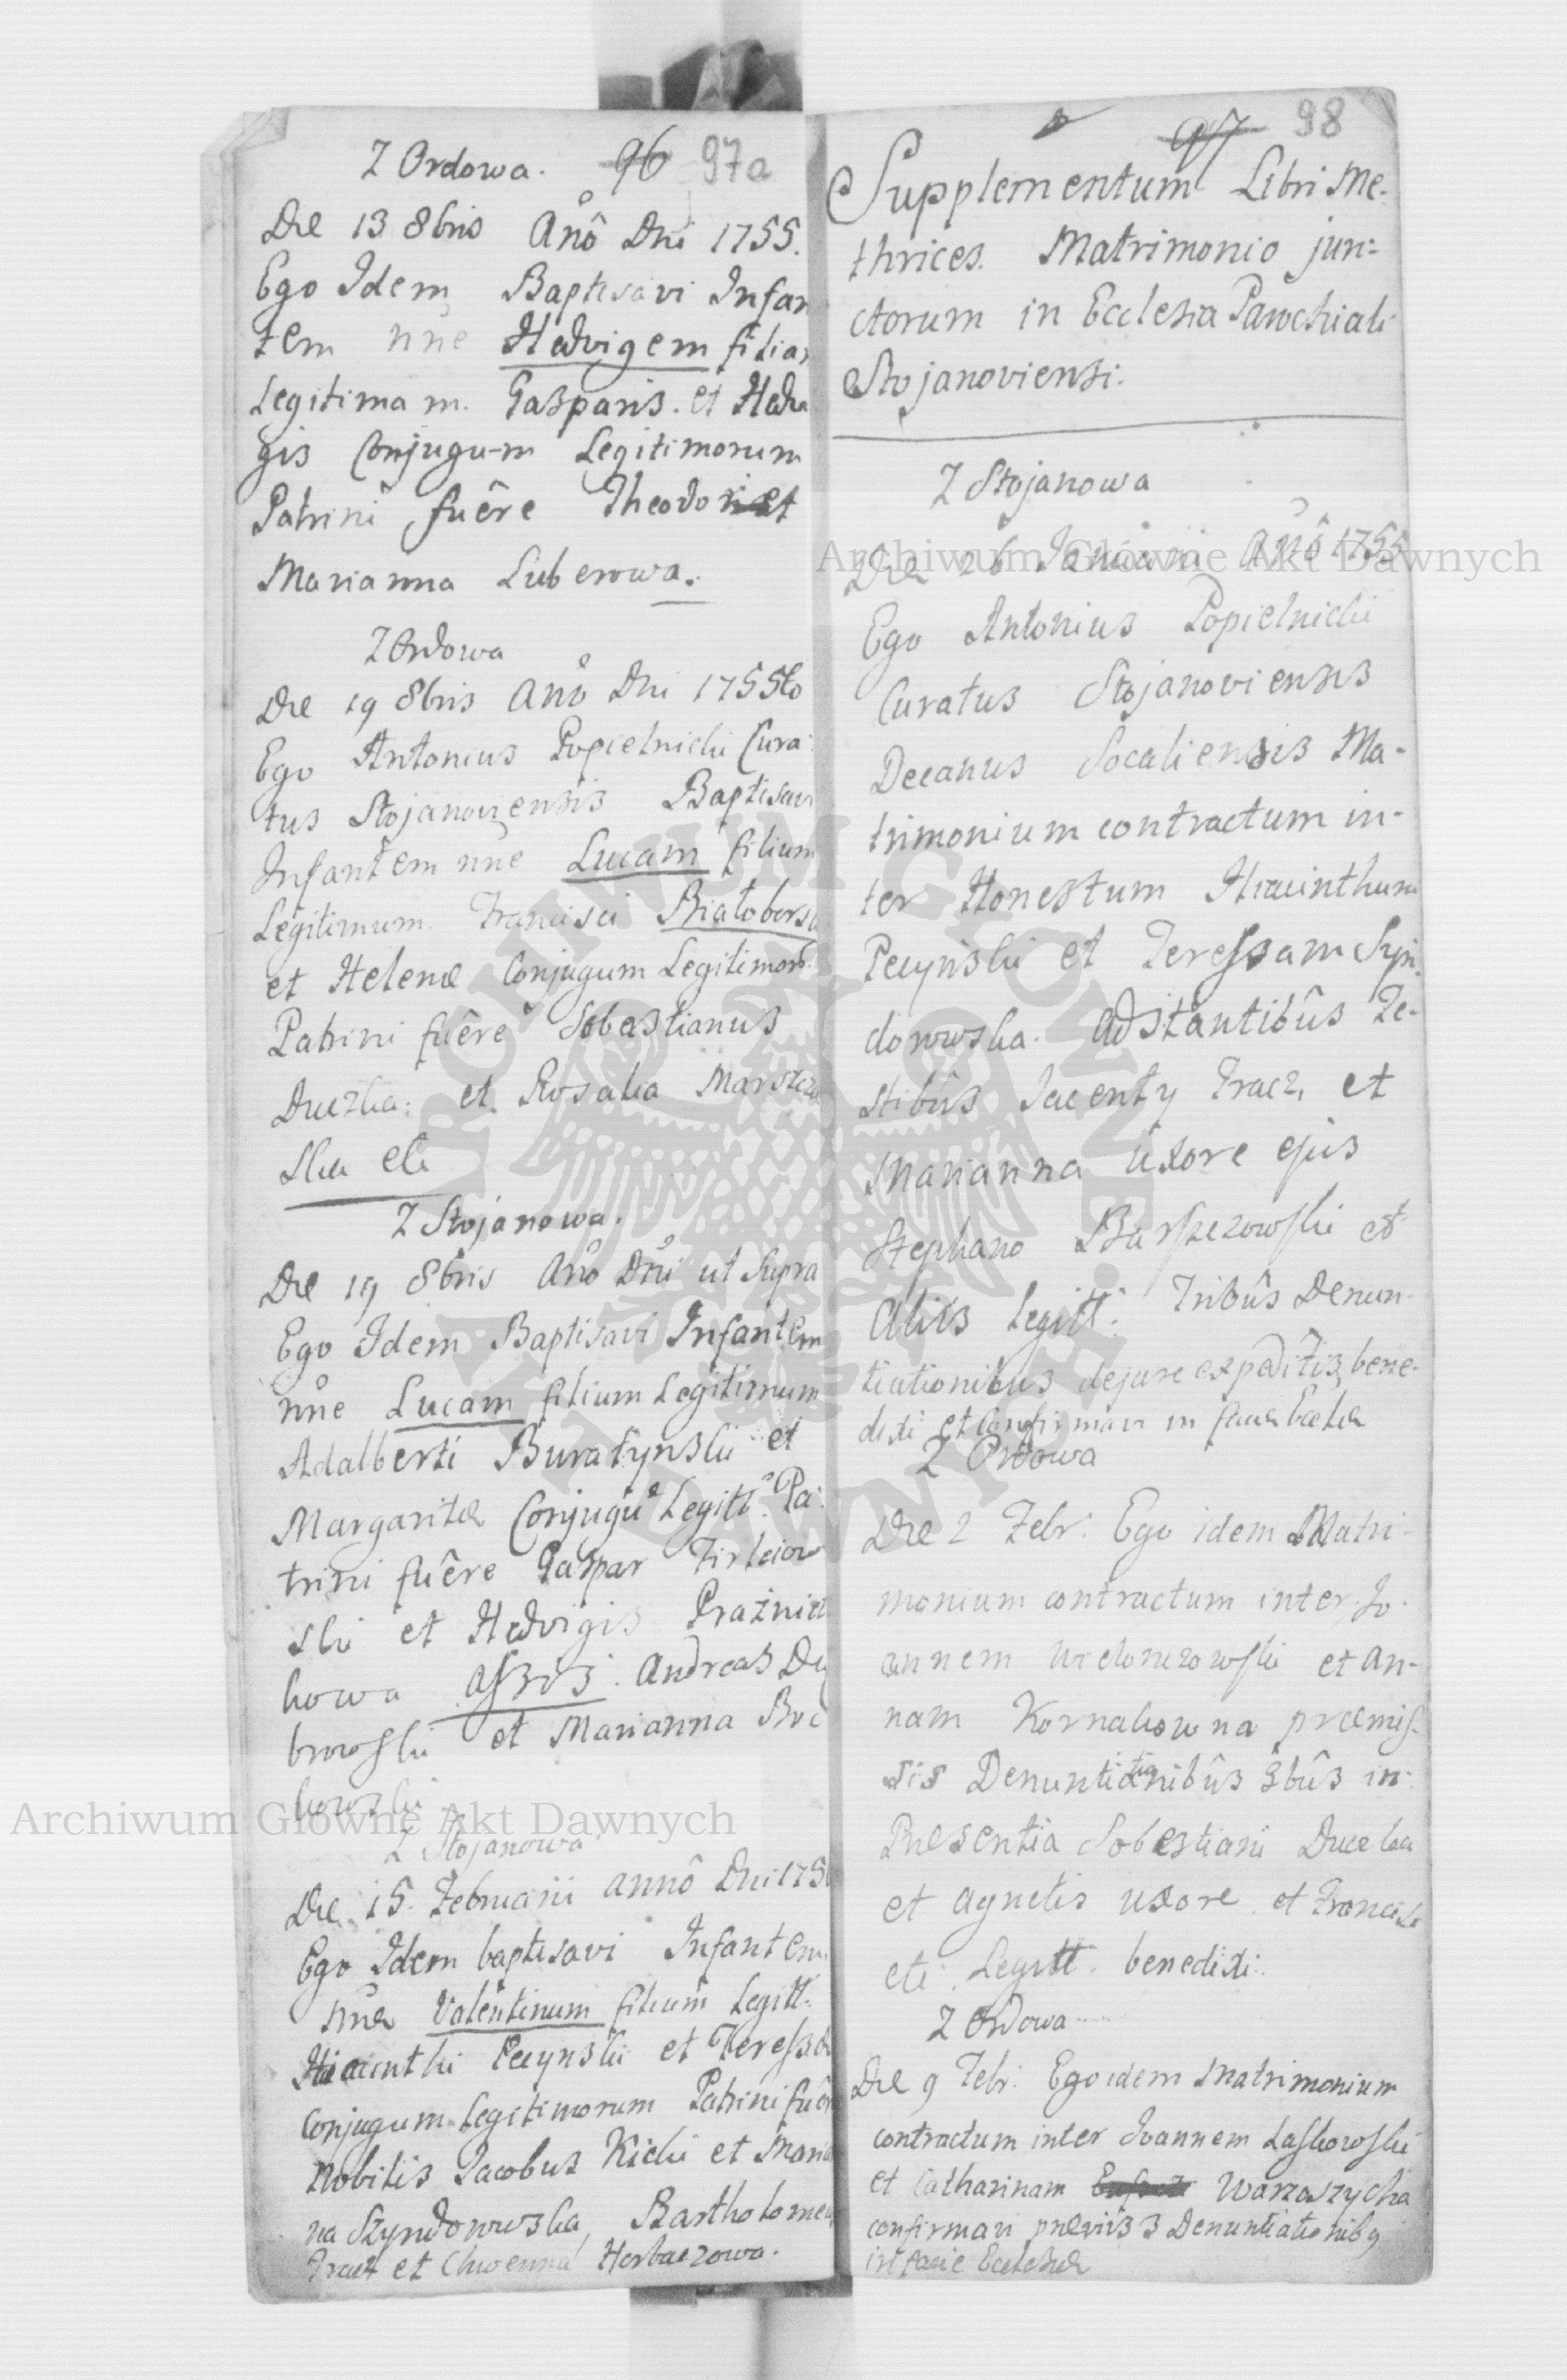 Z Ordowa. 96 97a
Die 13 8bris Anô Dni 1755.
Ego Idem Baptisavi Infan
tem nne Hedvigem filiam
Legitimam. Gasparis. et Hedvi
gis Conjugum Legitimorum
Patrini fuêre Theodor et
Marianna Luberowa.
Z Ordowa
Die 19 8bris Anô Dni 1755to
Ego Antonius Popielnicki Cura:
tus Stojanoviensis Baptisavi
Infantem nne Lucam filium
Legitimum Francisci Białobors
et Helenæ Conjugum Legitimoro
Patrini fuêre Sobestianus
Duczka: et Rosalia Marszcze
ska etc
Z Stojanowa.
Die 19 8bris Anô Dni ut Supra
Ego Idem Baptisavi Infantem
nne Lucam filium Legitimum
Adalberti Buratynski et
Margaritæ Conjugu Legitt. Pa:
trini fuêre Gaspar Firleiow
ski et Hedvigis Praznic
kowa Assis: Andreas Dą
browski et Marianna Boc
kowski
Z Stojanowa
Die 15. Februarii annô Dni 175
Ego Idem baptisavi Infantem
nne Valentinum filium Legitt.
Hiacinthi Pecynski et Teressæ
Conjugum Legitimorum Patrini fuêr
Nobilis Jacobus Kicki et Maria
na Szyndorowska, Bartholomeu
Tracz et Horbaczowa.
97 98
Supplementum Libri Me-
thrices. Matrimonio jun=
ctorum in Ecclesia Parochiali
Stojanoviensi:
Z Stojanowa
Die 26 Januarii Anô 1755
Ego Antonius Popielnicki
Curatus Stojanoviensis
Decanus Socaliensis Ma-
trimonium contractum in-
ter Honestum Hiacinthum
Pecynski et Teressam Syn
dorowska. adstantibûs Te-
stibûs Jacenty Tracz, et
Marianna Uxore ejus
Stephano Barszczowski et
Aliis Legitt: Tribûs Denun-
tiationibus dejure expeditis bene-
dixi et Confirmavi in facie Eccle
Z Ordowa
Die 2 Febr: Ego idem Matri-
monium contractum inter Jo-
annem et An-
nam Kornakowna præmis-
sis Denuntiationibûs 3bûs in:
Præsentia Sobestiani Duczka
et Agnetis uxore et Francisc
etc Legitt. benedixi:
Z Ordowa
Die 9 Febr: Ego idem Matrimonium
contractum inter Joannem Laskowski
et Catharinam Warzaszycha
confirmavi præviis 3 Denuntiationibq
in facie Ecclesiæ
Archiwum Główne Akt Dawnych
Archiwum Główne Akt Dawnych
ARCHIWUM GŁÓWNE AKT DAWNYCH